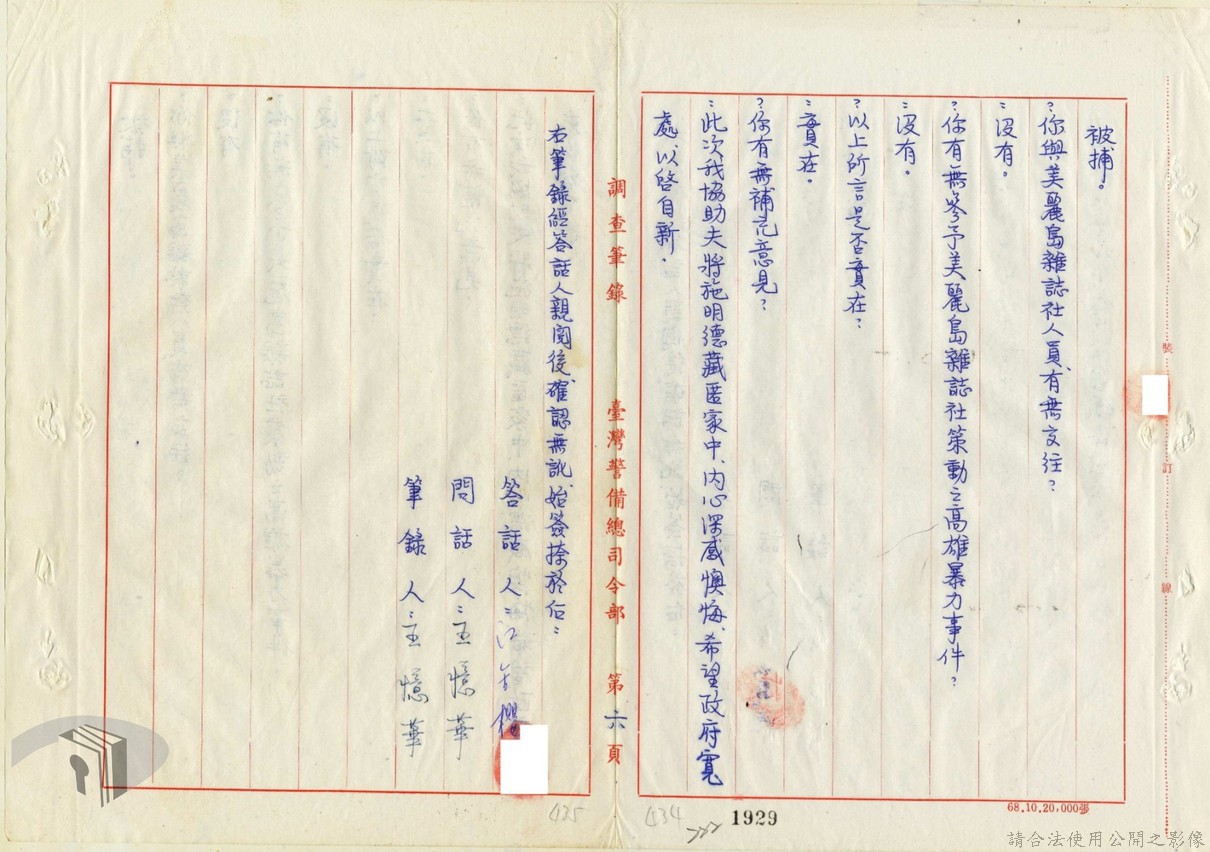 被捕。
?你與美麗島雜誌社人員、有無交往?
:沒有。
?你有無參予美麗島雜誌社策動之高雄暴力事件?
:沒有。
?以上所言是否實在?
:實在。
?你有無補充意見?
:此次我協助夫將施明德藏匿家中、內心深感懊悔、希望政府寬
處、以啓自新。
調查筆錄 臺灣警備總司令部 第六頁
右筆錄經答話人親閱後、確認無訛、始簽捺於后:
答話人:江
問話人:王憶華
筆錄人:王憶華
裝
訂
線
68.10.20,000張
434
1929
435
請合法使用公開之影像